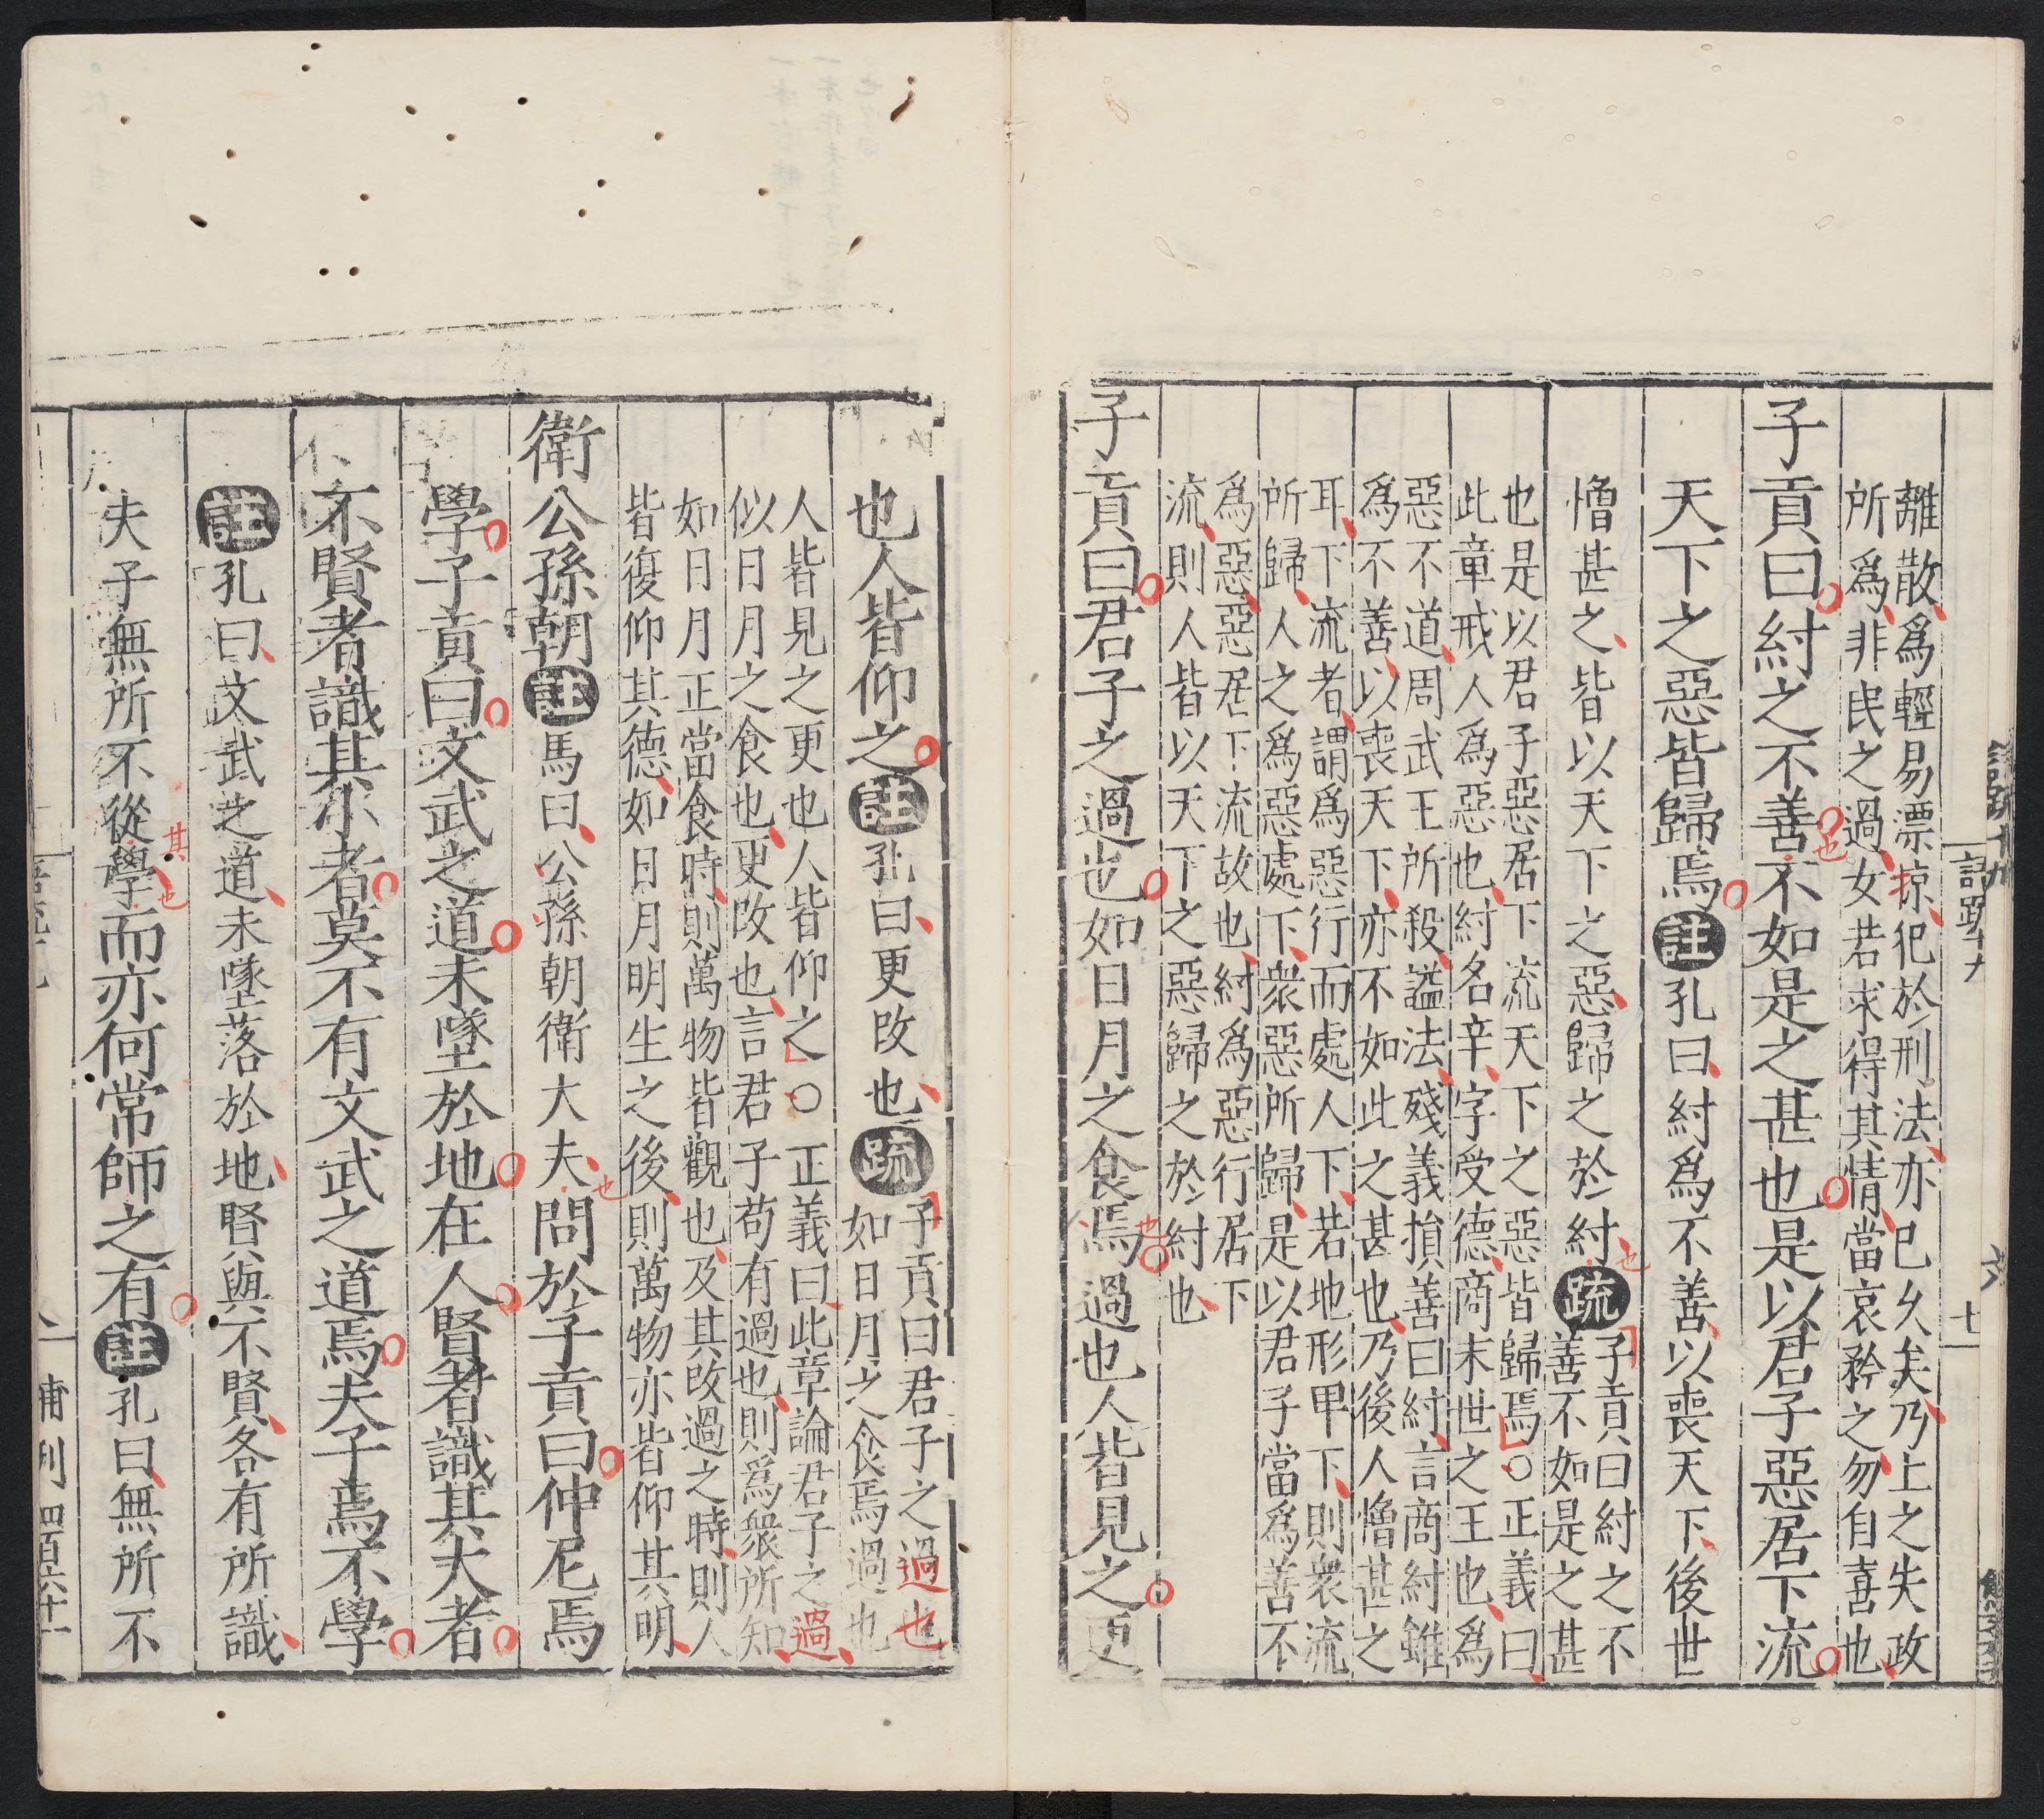 離散爲輕易漂掠犯於刑法亦已久矣乃上之失政
所爲非民之過女若求得其情當哀矜之勿自喜也
子貢曰紂之不善也不如是之甚也是以君子惡居下流
天下之惡皆歸焉註孔曰紂爲不善以喪天下後世
憎甚之皆以天下之惡歸之於紂也疏
子貢曰紂之不
善不如是之甚
也是以君子惡居下流天下之惡皆歸焉○正義曰
此章戒人爲惡也紂名辛字受德商末世之王也爲
惡不道周武王所殺謚法殘義損善曰紂言商紂雖
爲不善以喪天下亦不如此之甚也乃後人憎甚之
耳下流者謂爲惡行而處人下若地形卑下則衆流
所歸人之爲惡處下衆惡所歸是以君子當爲善不
爲惡惡居下流故也紂爲惡行居下
流則人皆以天下之惡歸之於紂也
子貢曰君子之過也如日月之食焉也過也人皆見之更
也人皆仰之註孔曰更改也疏
子貢曰君子之過也
如日月之食焉過也
人皆見之更也人皆仰之○正義曰此章論君子之過
似日月之食也更改也言君子苟有過也則爲衆所知
如日月正當食時則萬物皆觀也及其改過之時則人
皆復仰其德如日月明生之後則萬物亦皆仰其明
衛公孫朝註馬曰公孫朝衛大夫也問於子貢曰仲尼焉
學子貢曰文武之道未墜於地在人賢者識其大者
不賢者識其小者莫不有文武之道焉夫子焉不學
註孔曰文武之道未墜落於地賢與不賢各有所識
夫子無所不從其學也而亦何常師之有註孔曰無所不
語疏十九
十一
補刊
四百六十一